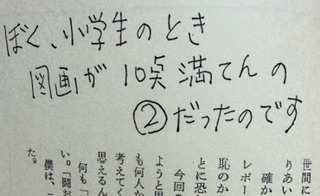 ぼく、小学生のとき
図画が 10点満てんの
②だったのです
世間に
りあい
確か
レポー
恥のか
とに恐
今回の
ようと思
も何人か
考えてく
思えるん
何も「
い。『闘お
僕は、こ
た。